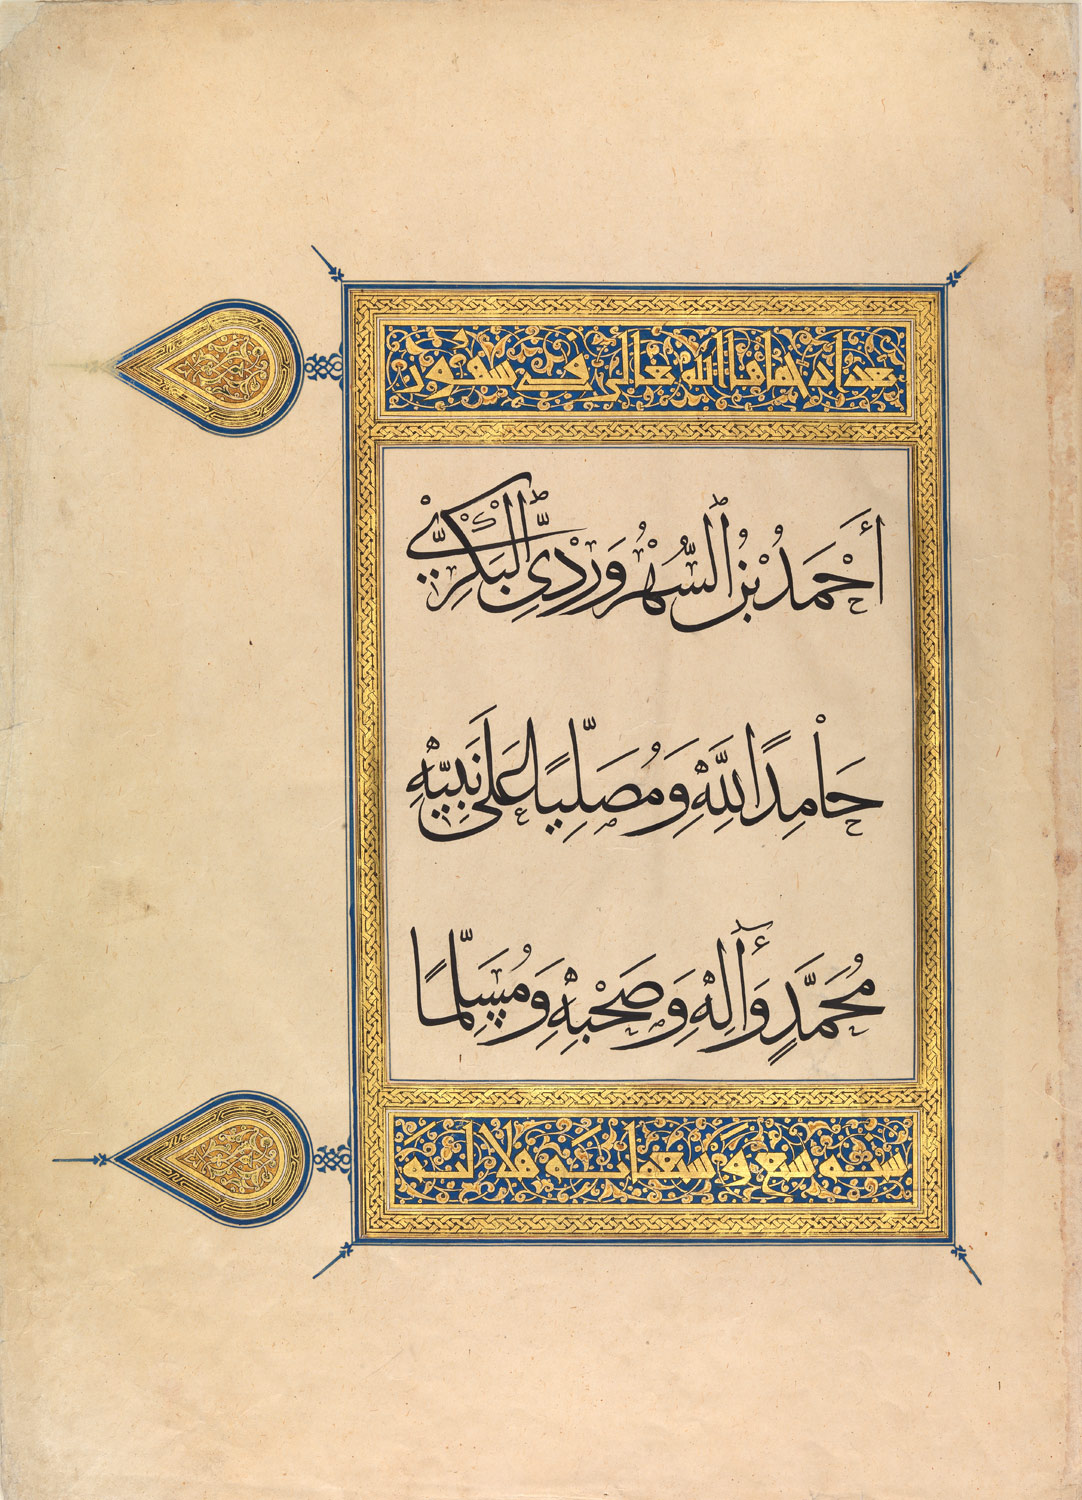 بغداد حماها الله تعالى في شهور
أَحْمَدُ بْنُ السُّهْرَوَرْدِيِّ الْبَكْرِيِّ
حَامِدًا لِلَّهِ وَمُصَلِّيًا عَلَى نَبِيِّهِ
مُحَمَّدٍ وَآلِهِ وَصَحْبِهِ وَمُسَلِّمًا
سنة سبع وسبعمائة هلالية